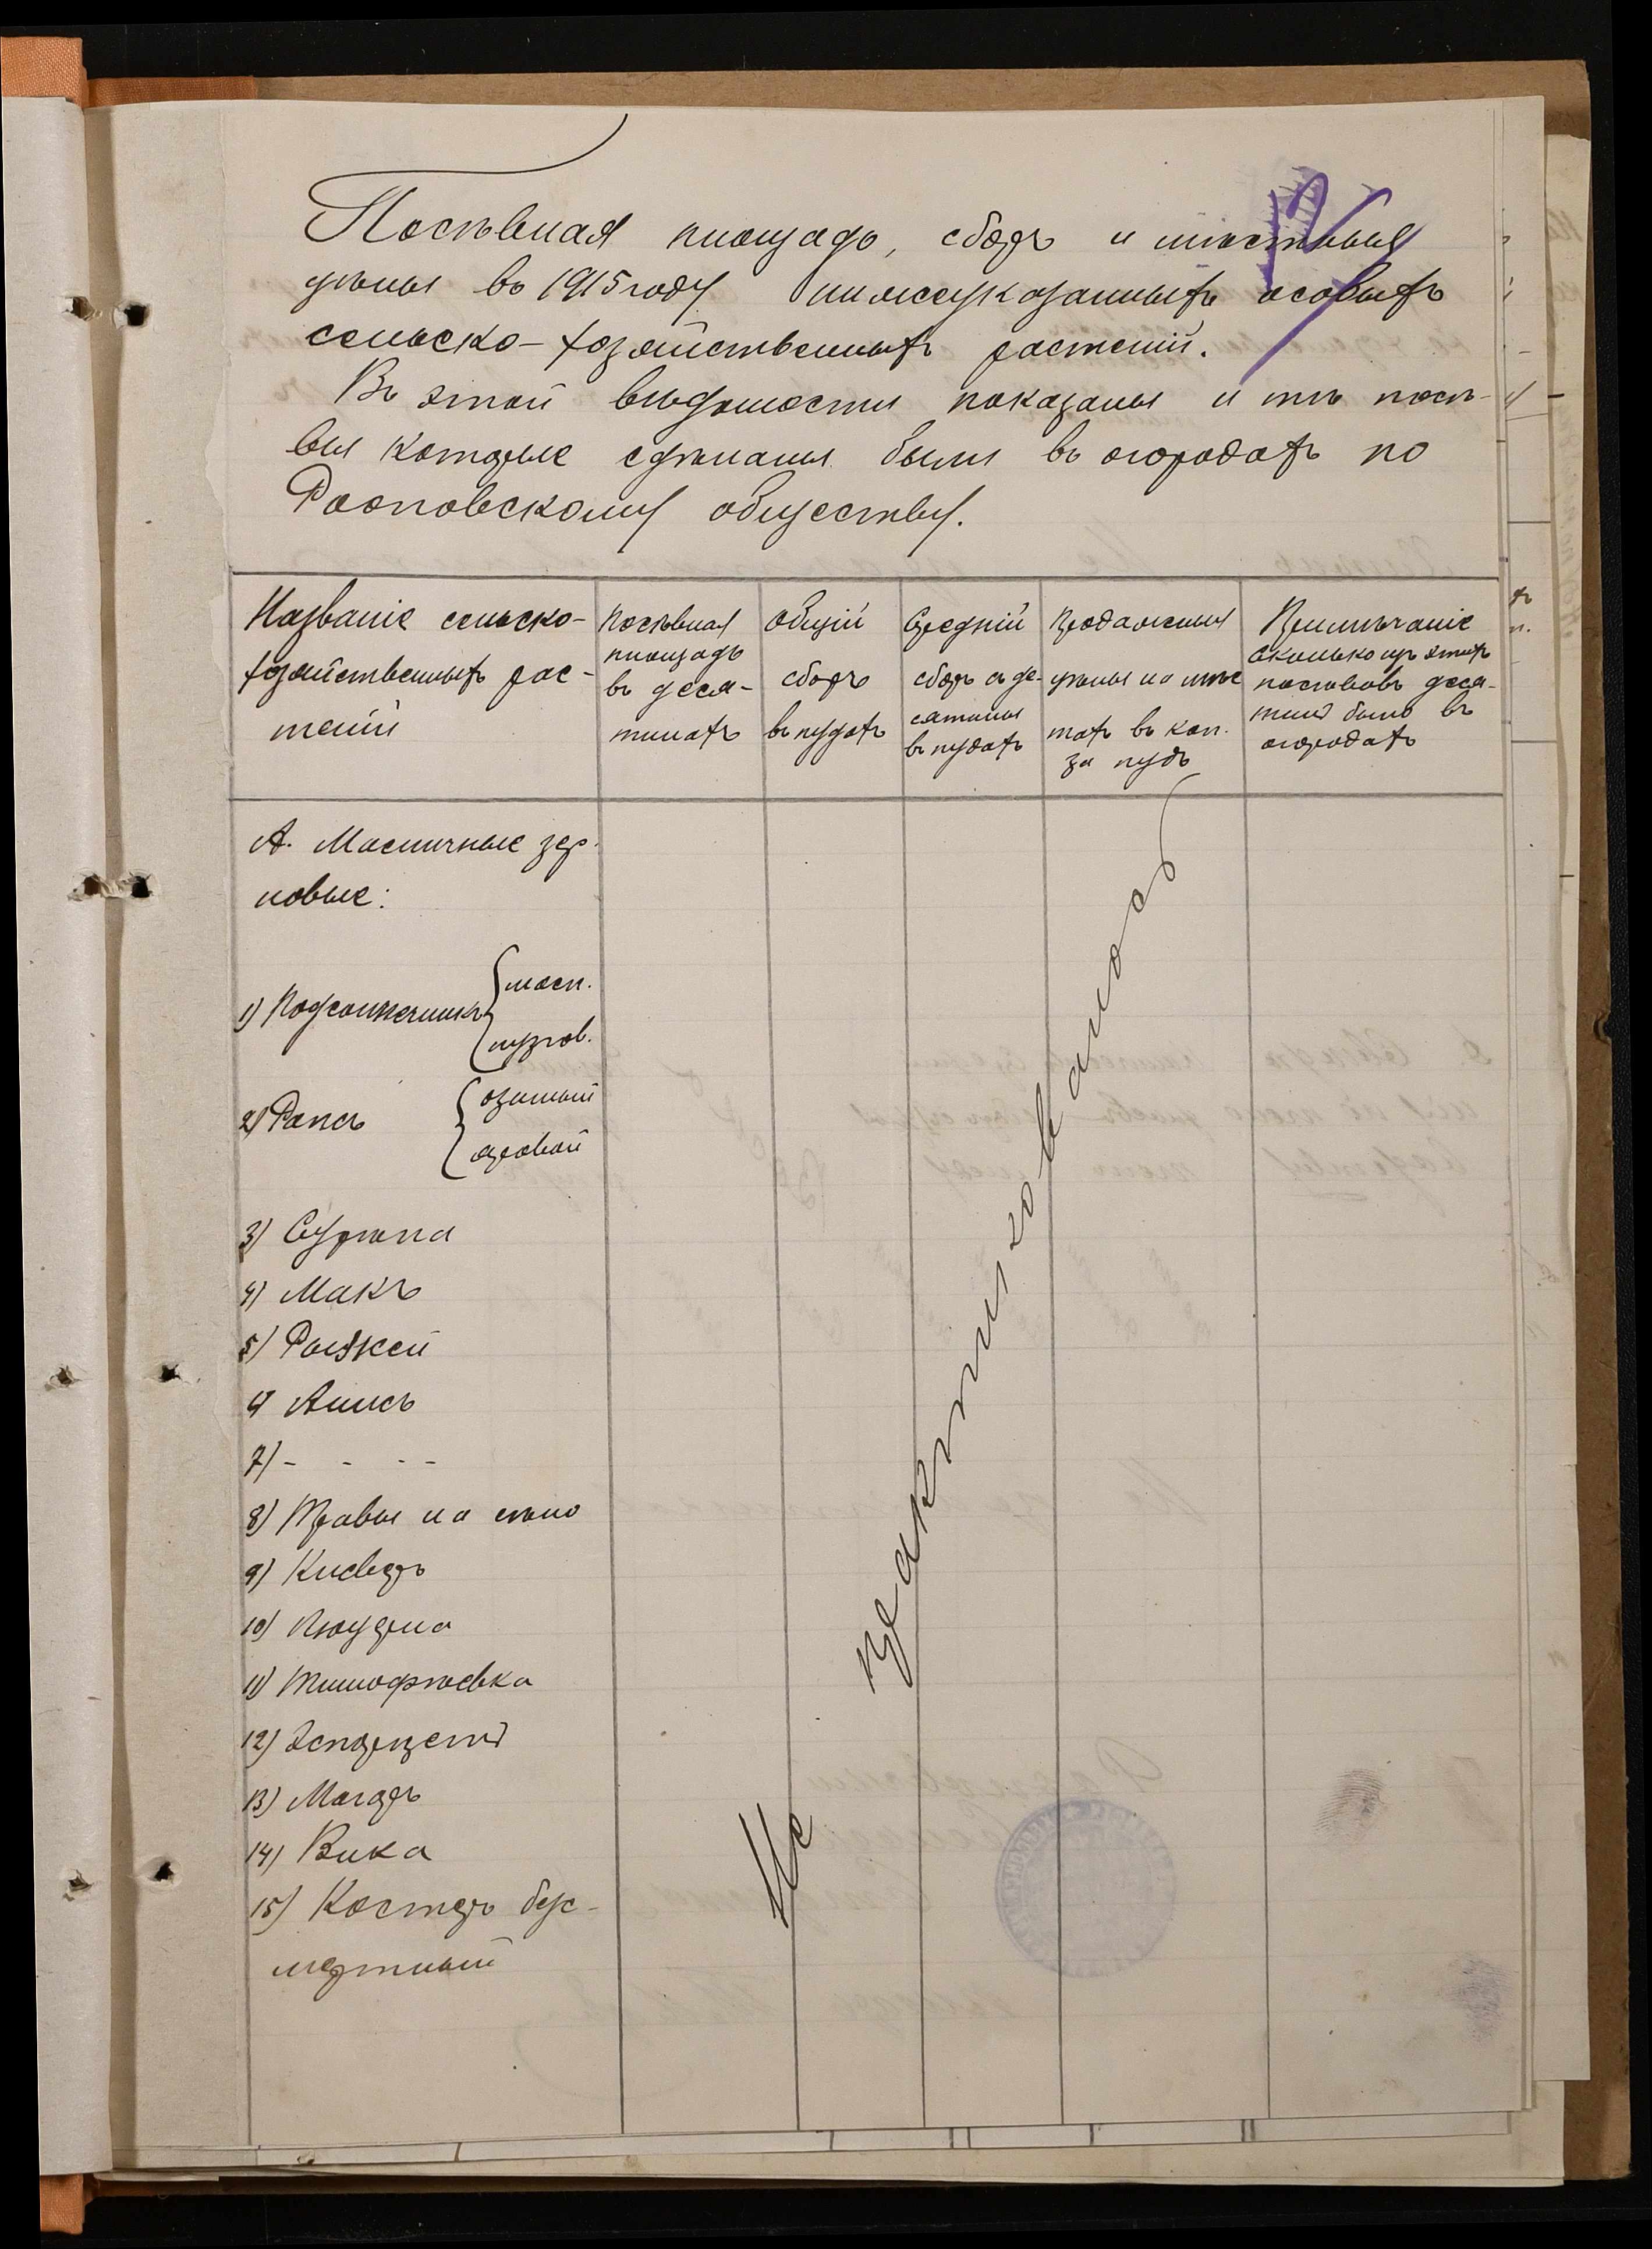 Посѣвная площадь, сборъ и мѣстныя
цѣны въ 1915 году нижеуказанныхъ особыхъ
сельско-хозяйственныхъ растеній.
Въ этой вѣдомости показаны и тѣ посѣ-
вы которые сдѣланы были въ огородахъ по
обществу.
Названіе сельско-
хозяйственныхъ рас-
теній
Посѣвная
площадь
въ деся-
тинахъ
Общій
сборъ
въ пудахъ
Средній
сборъ съ де-
сятины
въ пудахъ
Продажныя
цѣны на мѣс
тахъ въ коп.
за пудъ
Примѣчаніе
сколько изъ этихъ
посѣвовъ деся-
тинъ было въ
огородахъ
А. Масличные зер-
новые:
1) Подсолнечникъ
масл.
грызов.
2) Рапсъ
озимый
яровой
3) Сурѣпа
4) Макъ
5) Рыжей
6) Анисъ
7) - - - -
8) Травы на сѣно
9) Клеверъ
10) Люцерна
11) Тимофѣевка
12) Эспарцетъ
13) Могаръ
14) Вика
15) Костеръ безс-
мертный
Не практиковалось